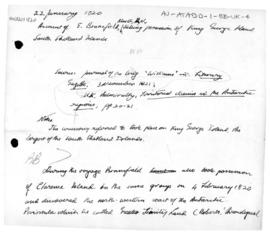 22 January 1820
AU-ATADD-1-BB-UK-4
Account of E. Bransfield, taking possession of King George Island
South Shetland Islands
Source: Journal of the brig "Williams" in Literary
Gazette, December 1821;
U.K. Admiralty, Territorial claims in the Antarctic
regions, pp. 20-21
Note
The ceremony referred to took place on King George Island the
largest of the South Shetland Islands.
During the voyage Bransfield also took possession
of Clarence Island in the same group on 4 February 1820
and discovered the north-western coast of the Antarctic
Peninsula which he called Trinity Land (Roberts,